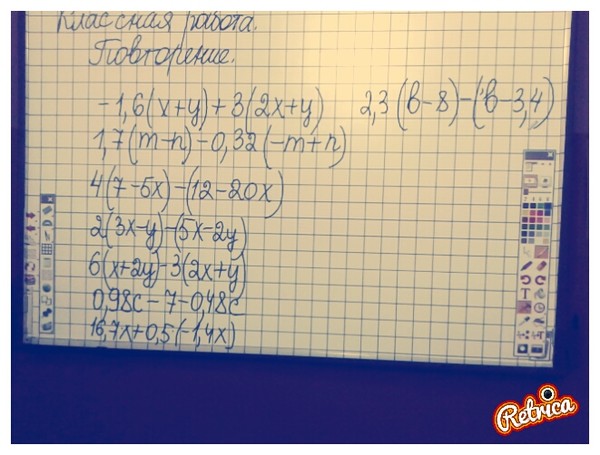 Классная работа.
Повторение.
-1,6(x+y)+3(2x+y) 2,3(в-8)-(в-3,4)
1,7(m-n)-0,32(-m+n)
4(7-5x)-(12-20x)
2(3x-y)-(5x-2y)
6(x+2y)-3(2x+y)
0,98c-7-0,48c
16,7x+0,5(-1,4x)
Retrica